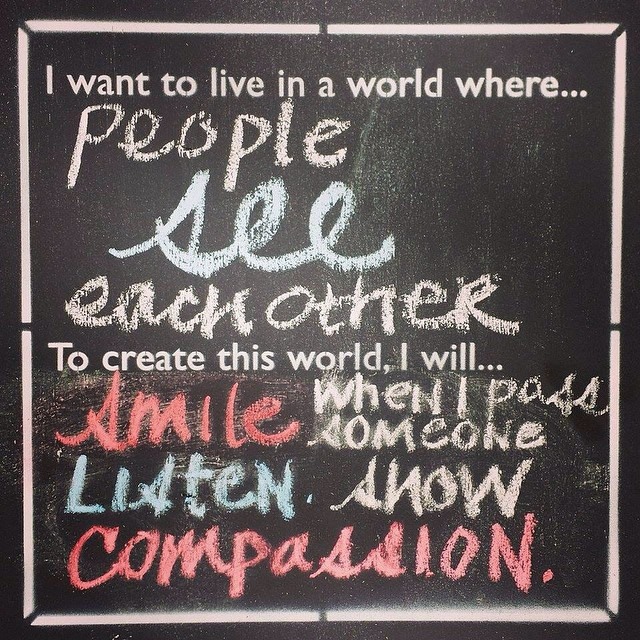 I want to live in a world where...
people
see
each other
To create this world, I will...
smile when I pass
someone
Listen. show
compassion.